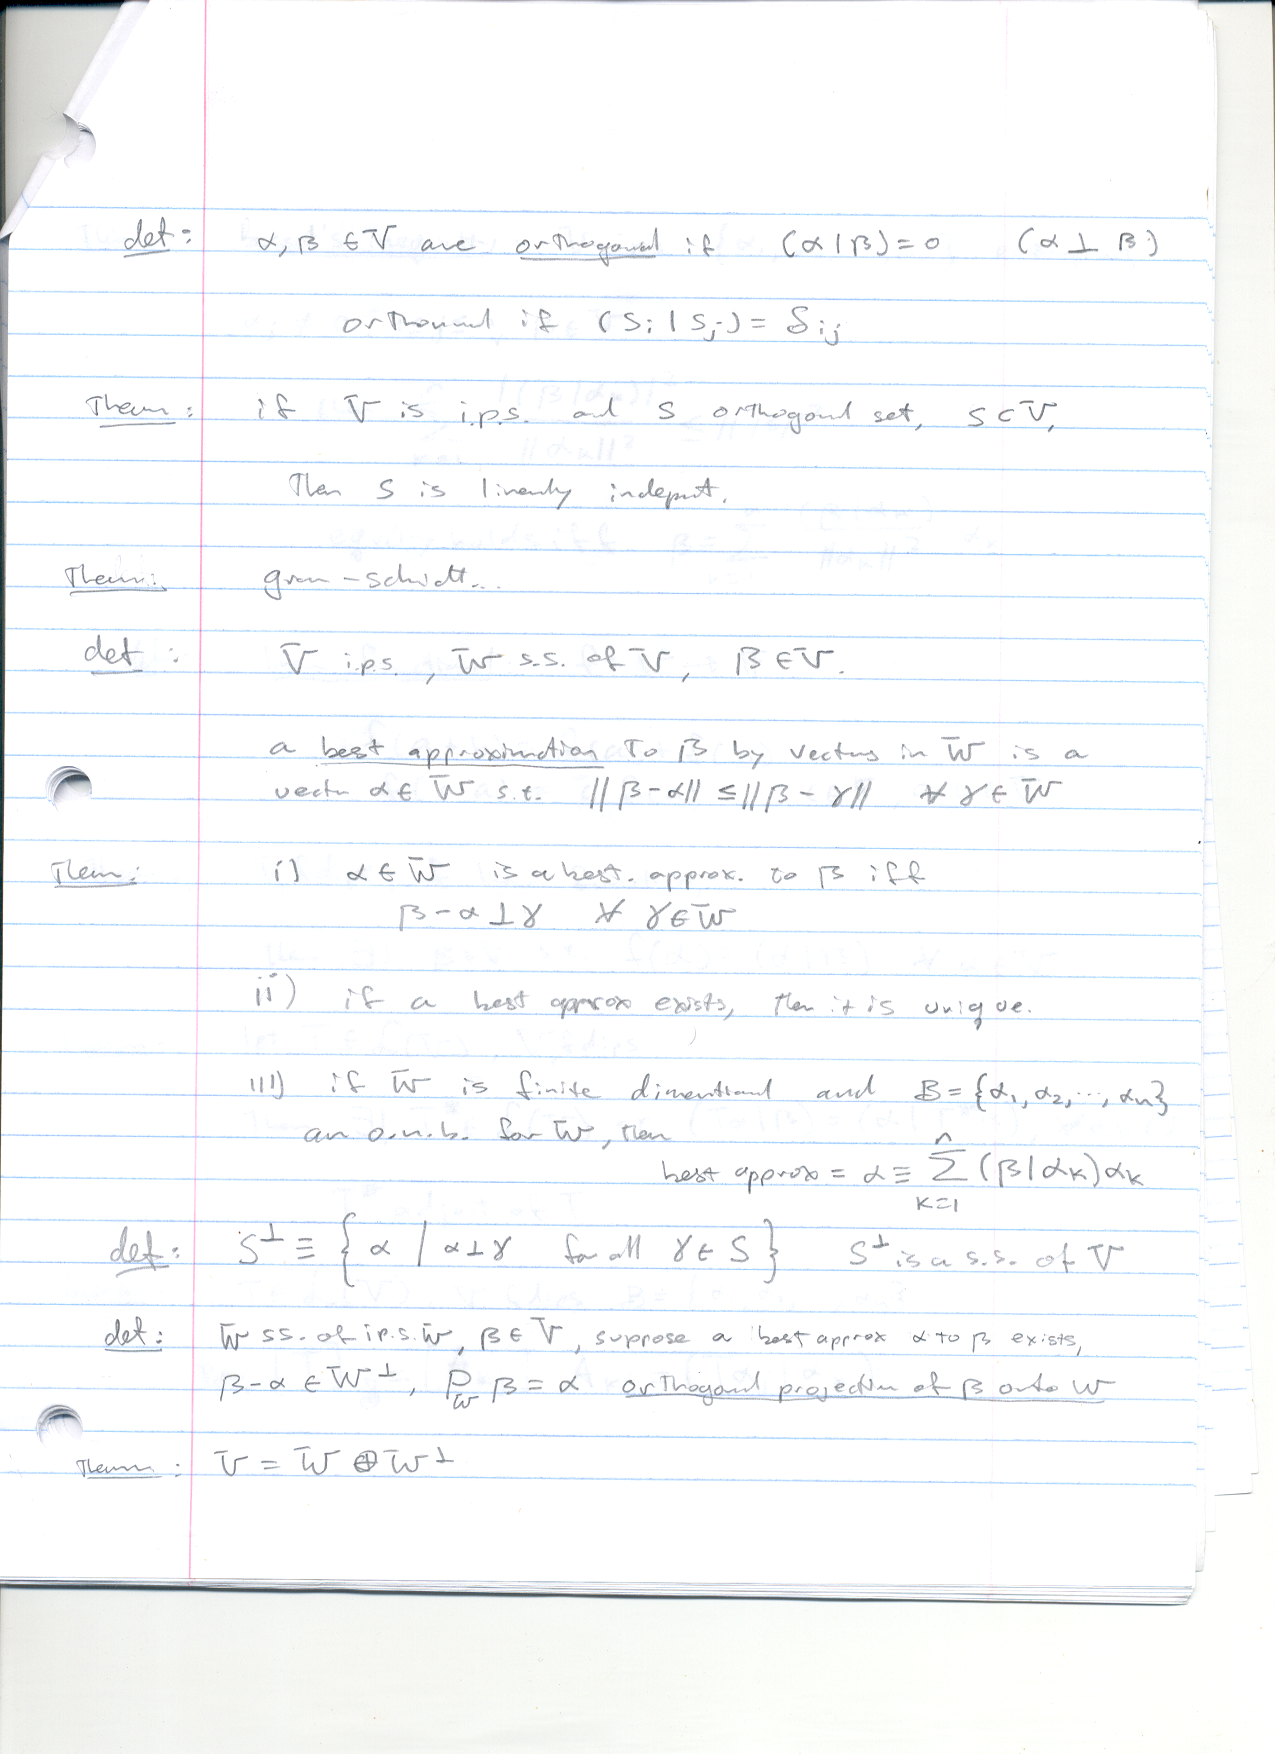 def: α, β ∈ V are orthogonal if (α | β) = 0 (α ⊥ β)
orthonormal if (Si | Sj) = δij
Thm: if V is i.p.s. and S orthogonal set, S ⊂ V,
then S is linearly indepent.
Thm: gram-schidt...
def: V i.p.s., W s.s. of V, β ∈ V.
a best approximation to β by vectors in W is a
vector α ∈ W s.t. ||β - α|| ≤ ||β - γ|| ∀ γ ∈ W
Thm: i) α ∈ W is a best. approx. to β iff
β - α ⊥ γ ∀ γ ∈ W
ii) if a best approx exists, then it is unique.
iii) if W is finite dimentional and B = {α1, α2, ..., αn}
an o.n.b. for W, then
best approx = α ≡ Σ_{k=1}^{n} (β | αk) αk
def: S⊥ ≡ {α | α ⊥ γ for all γ ∈ S} S⊥ is a s.s. of V
def: W ss. of i.p.s. W, β ∈ V, suppose a best approx α to β exists,
β - α ∈ W⊥, P_W β = α orthogonal projection of β onto W
Thm: V = W ⊕ W⊥